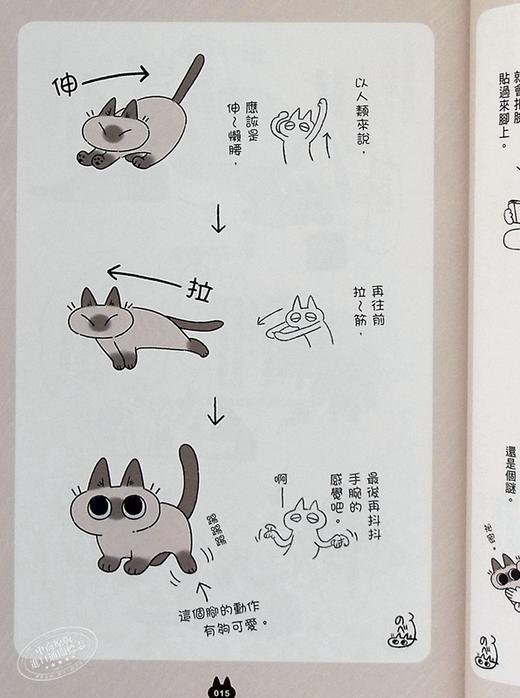 伸
以人類來說，
應該是
伸～懶腰，
拉
再往前
拉～筋，
最後再抖抖
手腕的
感覺吧。
啊——
踢踢踢
這個腳的動作
有夠可愛。
015
貼過來腳上。
還是個謎。